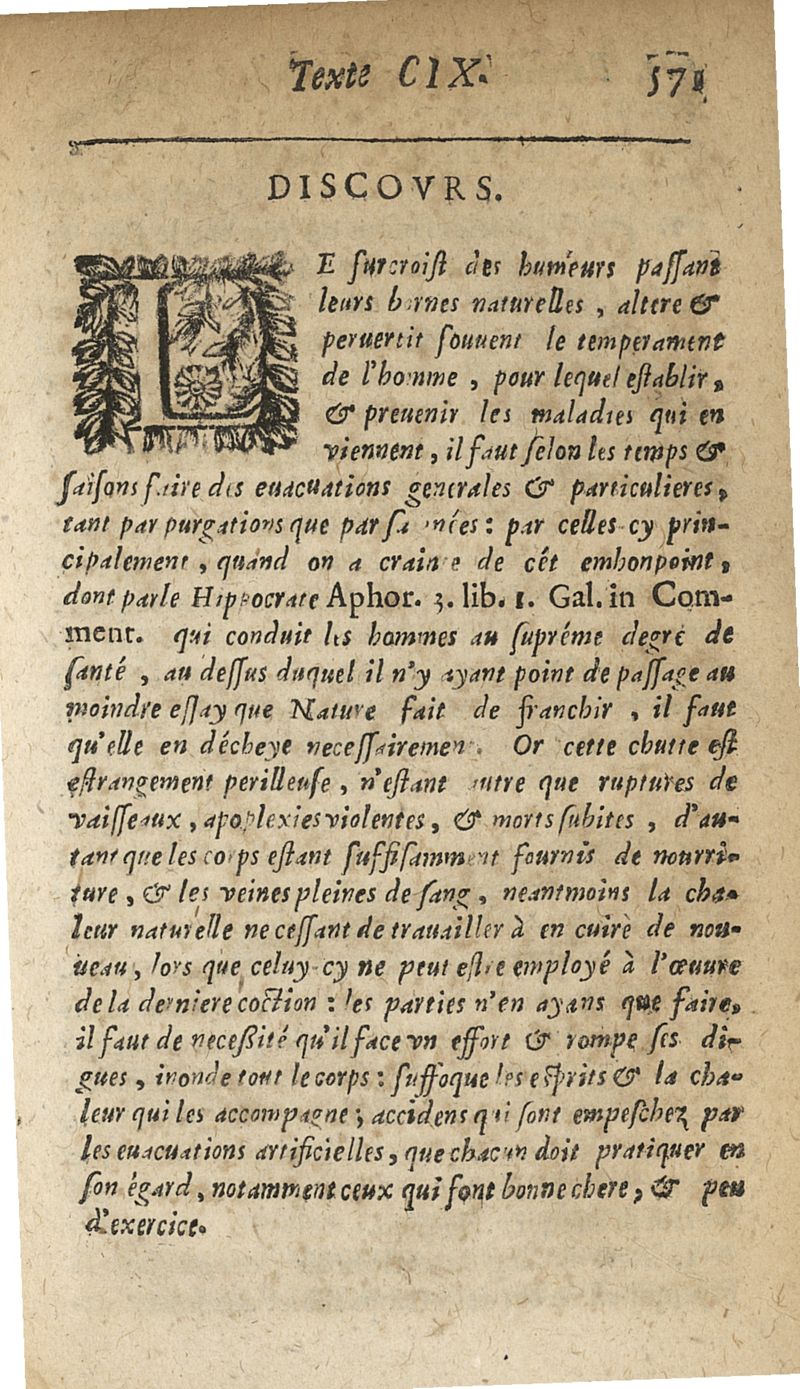 Texte CIX. 571
DISCOVRS.
LE ſurcroiſt des humeurs paſſant
leurs bornes naturelles, altere &
peruertit ſouuent le temperament
de l'homme, pour lequel eſtablir,
& preuenir les maladies qui en
viennent, il faut ſelon les temps &
ſaiſons faire des euacuations generales & particulieres,
tant par purgations que par ſaignées : par celles-cy prin-
cipalement, quand on a crainte de cét embonpoint,
dont parle Hippocrate Aphor. 3. lib. 1. Gal. in Com-
ment. qui conduit les hommes au ſupréme degré de
ſanté, au deſſus duquel il n'y ayant point de paſſage au
moindre eſſay que Nature fait de franchir, il faut
qu'elle en décheye neceſſairement. Or cette chutte eſt
eſtrangement perilleuſe, n'eſtant autre que ruptures de
vaiſſeaux, apoplexies violentes, & morts ſubites, d'au-
tant que les corps eſtant ſuffiſamment fournis de nourri-
ture, & les veines pleines de ſang, neantmoins la cha-
leur naturelle ne ceſſant de trauailler à en cuire de nou-
ueau, lors que celuy-cy ne peut eſtre employé à l'œuure
de la derniere coction : les parties n'en ayans que faire,
il faut de neceßité qu'il face vn effort & rompe ſes di-
gues, inonde tout le corps : ſuffoque les eſprits & la cha-
leur qui les accompagne ; accidens qui ſont empeſchez par
les euacuations artificielles, que chacun doit pratiquer en
ſon égard, notamment ceux qui font bonne chere, & peu
d'exercice.